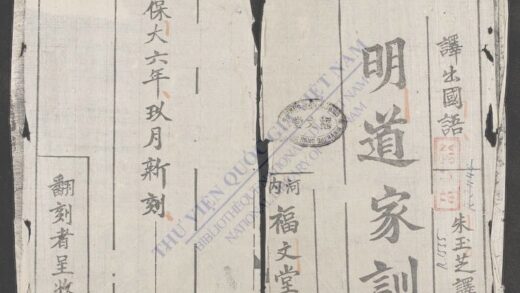 譯出國語
朱玉芝譯
明道家訓
河內
福文堂
保大六年玖月新刻
翻刻者呈
THƯ VIỆN QUỐC GIA VIỆT NAM
BIBLIOTHÈQUE NATIONALE DU VIETNAM
NATIONAL LIBRARY OF VIETNAM